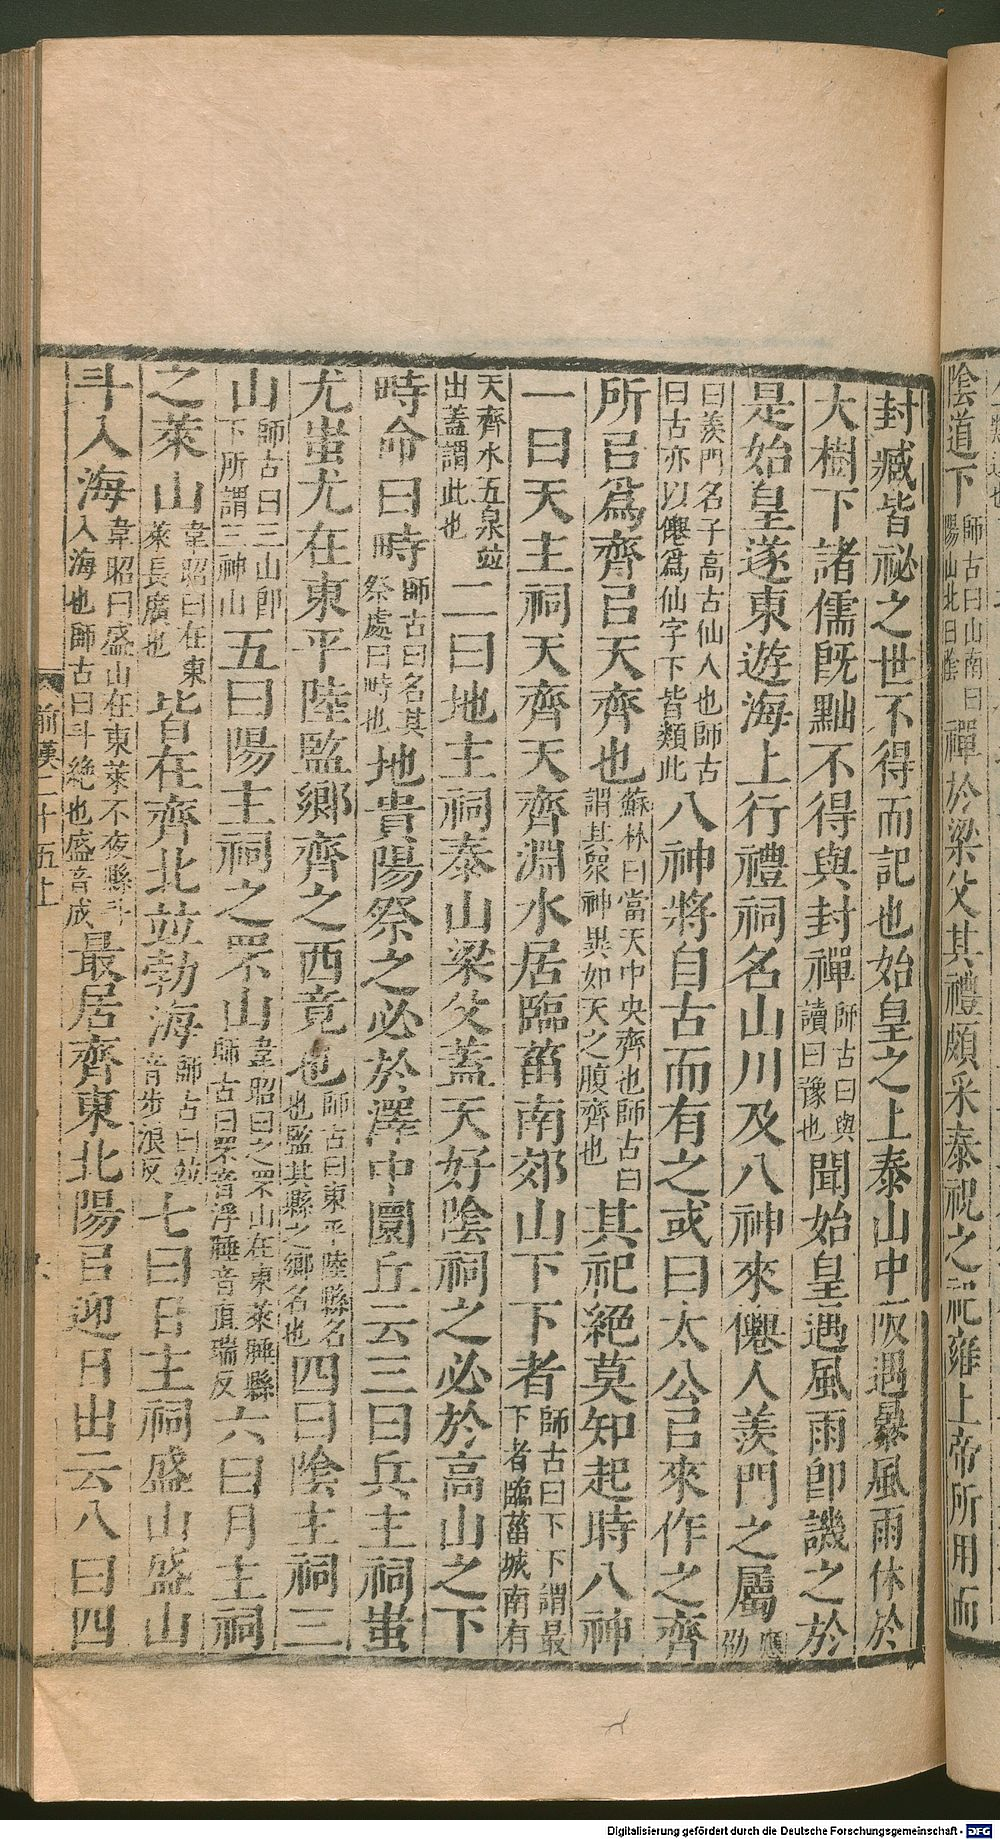 陰道下師古曰山南曰陽山北曰陰禪於梁父其禮頗采泰祝之祀雍上帝所用而
封臧皆祕之世不得而記也始皇之上泰山中阪遇暴風雨休於
大樹下諸儒旣黜不得與封禪師古曰與讀曰豫也聞始皇遇風雨卽譏之於
是始皇遂東遊海上行禮祠名山川及八神來僊人羨門之屬應劭
曰羨門名子高古仙人也師古曰古亦以僊爲仙字下皆類此八神將自古而有之或曰太公㠯來作之齊
所㠯爲齊㠯天齊也蘇林曰當天中央齊也師古曰謂其衆神異如天之腹齊也其祀絕莫知起時八神
一曰天主祠天齊天齊淵水居臨菑南郊山下下者師古曰下下謂最下者臨菑城南有
天齊水五泉竝出蓋謂此也二曰地主祠泰山梁父蓋天好陰祠之必於高山之下
畤命曰畤師古曰名其祭處曰畤也地貴陽祭之必於澤中圜丘云三曰兵主祠蚩
尤蚩尤在東平陸監鄉齊之西竟也師古曰東平陸縣名也監其縣之鄉名也四曰陰主祠三
山師古曰三山卽下所謂三神山五曰陽主祠之罘山韋昭曰之罘山在東萊腄縣師古曰罘音浮腄音直瑞反六曰月主祠
之萊山韋昭曰在東萊長廣也皆在齊北竝勃海師古曰竝音步浪反七曰日主祠盛山盛山
斗入海韋昭曰盛山在東萊不夜縣斗入海也師古曰斗絶也盛音成最居齊東北陽㠯迎日出云八曰四
前漢二十五上
Digitalisierung gefördert durch die Deutsche Forschungsgemeinschaft - DFG